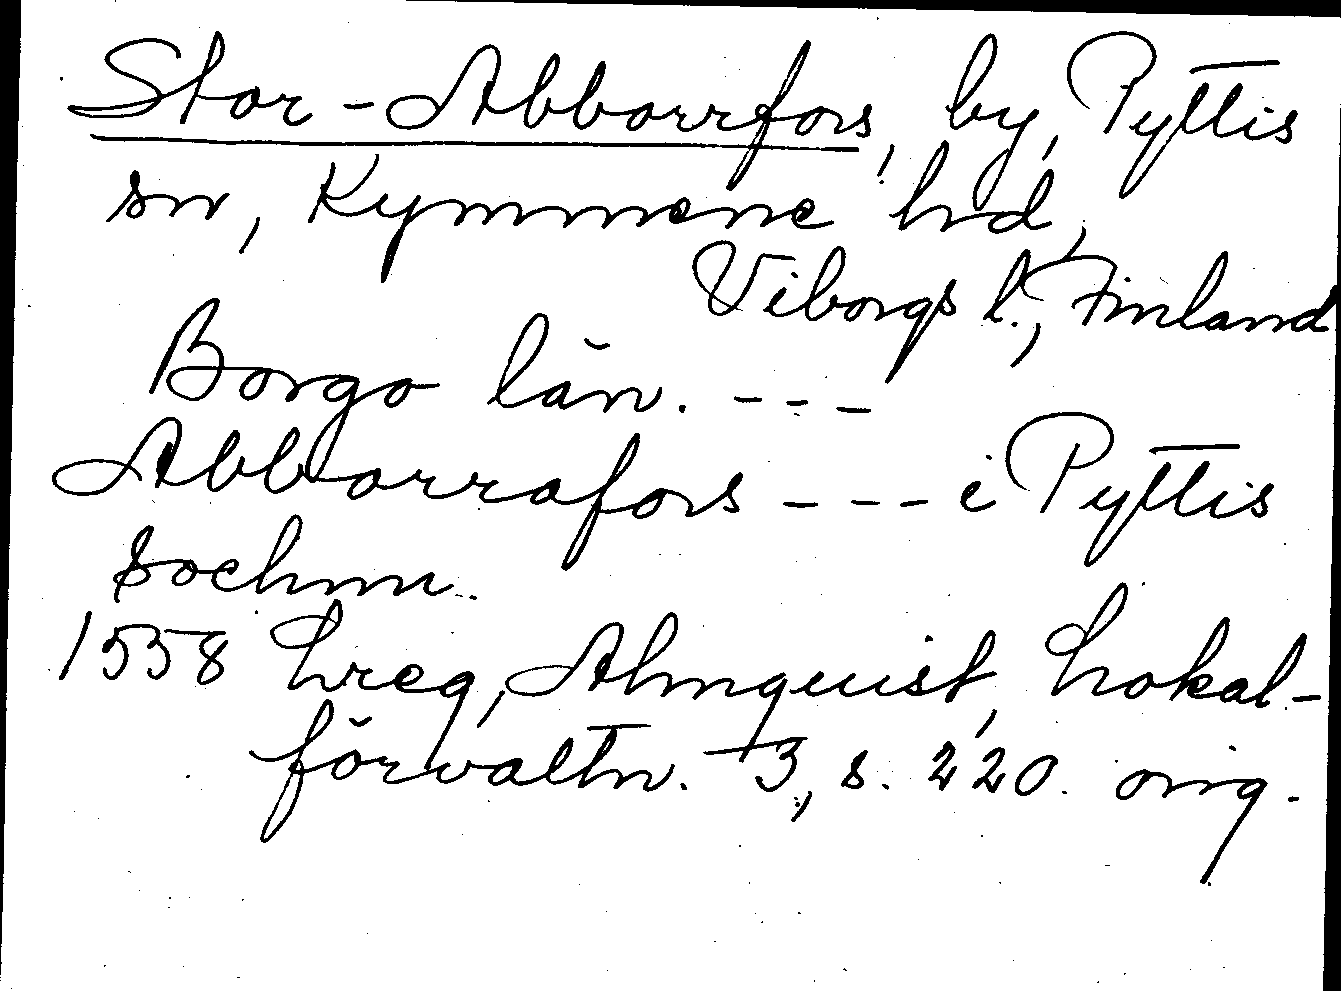 Stor-Abborrfors, by, Pyttis
sn, Kymmene hd,
Viborgs l., Finland
Borgo län. ---
Abborrafors --- i Pyttis
sochnn.
1558 Lreg, Almquist, Lokal-
förvaltn. 3, s. 220. orig.